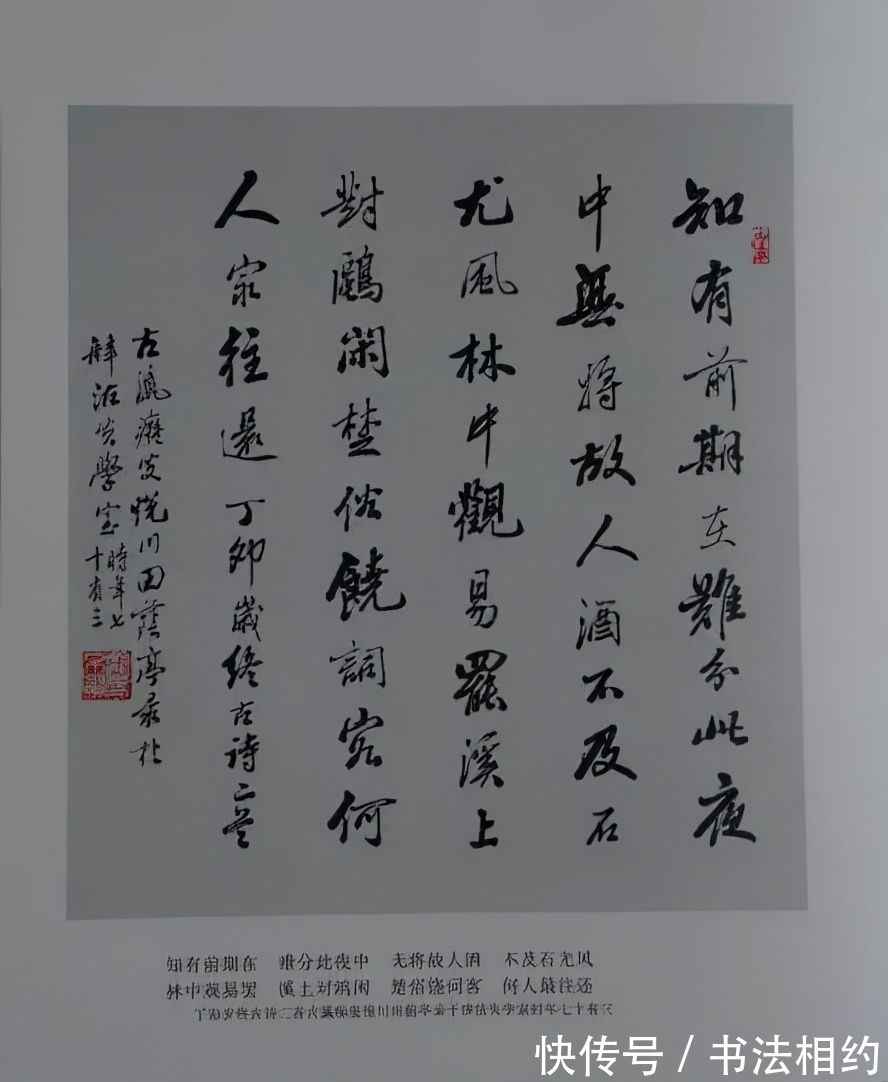 知有前期在難分此夜
中無將故人酒不及石
尤風林中觀易罷溪上
對鷗閑楚俗饒詞客何
人最往還丁卯歲終古詩二首
古川田蔭亭录於
學室時年七
十有三
知有前期在 难分此夜中 无将故人酒 不及石尤风
林中观易罢 溪上对鸥闲 楚俗饶词客 何人最往还
快传号 / 书法相约